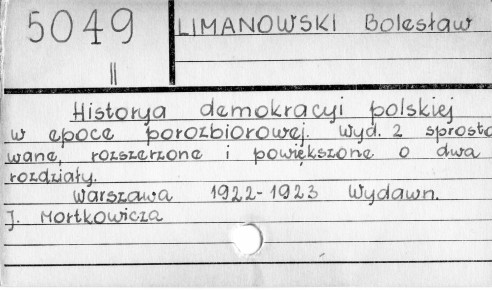 5049
II
LIMANOWSKI Bolesław
Historya demokracyi polskiej
w epoce porozbiorowej. Wyd. 2 sprosto
wane, rozszerzone i powiększone o dwa
rozdziały.
Warszawa 1922-1923 Wydawn.
J. Mortkowicza